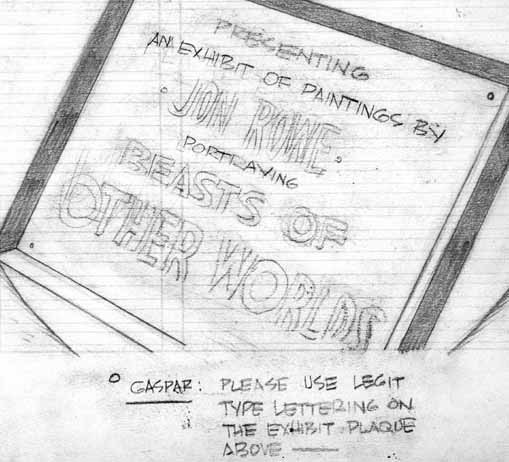 PRESENTING
AN EXHIBIT OF PAINTINGS BY
JON ROWE
PORTRAYING
BEASTS OF
OTHER WORLDS
GASPAR: PLEASE USE LEGIT
TYPE LETTERING ON
THE EXHIBIT PLAQUE
ABOVE